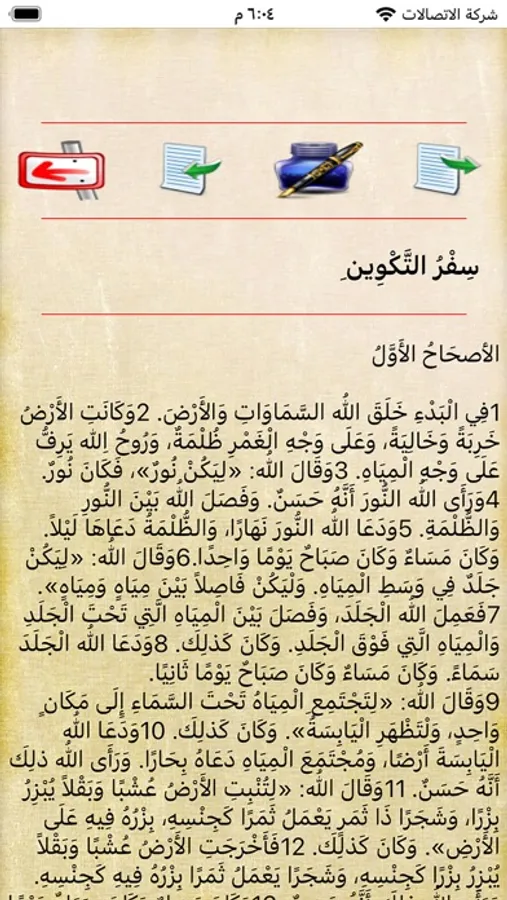 شركة الاتصالات
٦:٠٤ م
سِفْرُ التَّكْوِينِ
الأصحَاحُ الأَوَّلُ
1فِي الْبَدْءِ خَلَقَ اللهُ السَّمَاوَاتِ وَالأَرْضَ. 2وَكَانَتِ الأَرْضُ
خَرِبَةً وَخَالِيَةً، وَعَلَى وَجْهِ الْغَمْرِ ظُلْمَةٌ، وَرُوحُ اللهِ يَرِفُّ
عَلَى وَجْهِ الْمِيَاهِ. 3وَقَالَ اللهُ: «لِيَكُنْ نُورٌ»، فَكَانَ نُورٌ.
4وَرَأَى اللهُ النُّورَ أَنَّهُ حَسَنٌ. وَفَصَلَ اللهُ بَيْنَ النُّورِ
وَالظُّلْمَةِ. 5وَدَعَا اللهُ النُّورَ نَهَارًا، وَالظُّلْمَةُ دَعَاهَا لَيْلاً.
وَكَانَ مَسَاءٌ وَكَانَ صَبَاحٌ يَوْمًا وَاحِدًا.6وَقَالَ اللهُ: «لِيَكُنْ
جَلَدٌ فِي وَسَطِ الْمِيَاهِ. وَلْيَكُنْ فَاصِلاً بَيْنَ مِيَاهٍ وَمِيَاهٍ».
7فَعَمِلَ اللهُ الْجَلَدَ، وَفَصَلَ بَيْنَ الْمِيَاهِ الَّتِي تَحْتَ الْجَلَدِ
وَالْمِيَاهِ الَّتِي فَوْقَ الْجَلَدِ. وَكَانَ كَذلِكَ. 8وَدَعَا اللهُ الْجَلَدَ
سَمَاءً. وَكَانَ مَسَاءٌ وَكَانَ صَبَاحٌ يَوْمًا ثَانِيًا.
9وَقَالَ اللهُ: «لِتَجْتَمِعِ الْمِيَاهُ تَحْتَ السَّمَاءِ إِلَى مَكَانٍ
وَاحِدٍ، وَلْتَظْهَرِ الْيَابِسَةُ». وَكَانَ كَذلِكَ. 10وَدَعَا اللهُ
الْيَابِسَةَ أَرْضًا، وَمُجْتَمَعَ الْمِيَاهِ دَعَاهُ بِحَارًا. وَرَأَى اللهُ ذلِكَ
أَنَّهُ حَسَنٌ. 11وَقَالَ اللهُ: «لِتُنْبِتِ الأَرْضُ عُشْبًا وَبَقْلاً يُبْزِرُ
بِزْرًا، وَشَجَرًا ذَا ثَمَرٍ يَعْمَلُ ثَمَرًا كَجِنْسِهِ، بِزْرُهُ فِيهِ عَلَى
الأَرْضِ». وَكَانَ كَذلِكَ. 12فَأَخْرَجَتِ الأَرْضُ عُشْبًا وَبَقْلاً
يُبْزِرُ بِزْرًا كَجِنْسِهِ، وَشَجَرًا يَعْمَلُ ثَمَرًا بِزْرُهُ فِيهِ كَجِنْسِهِ.